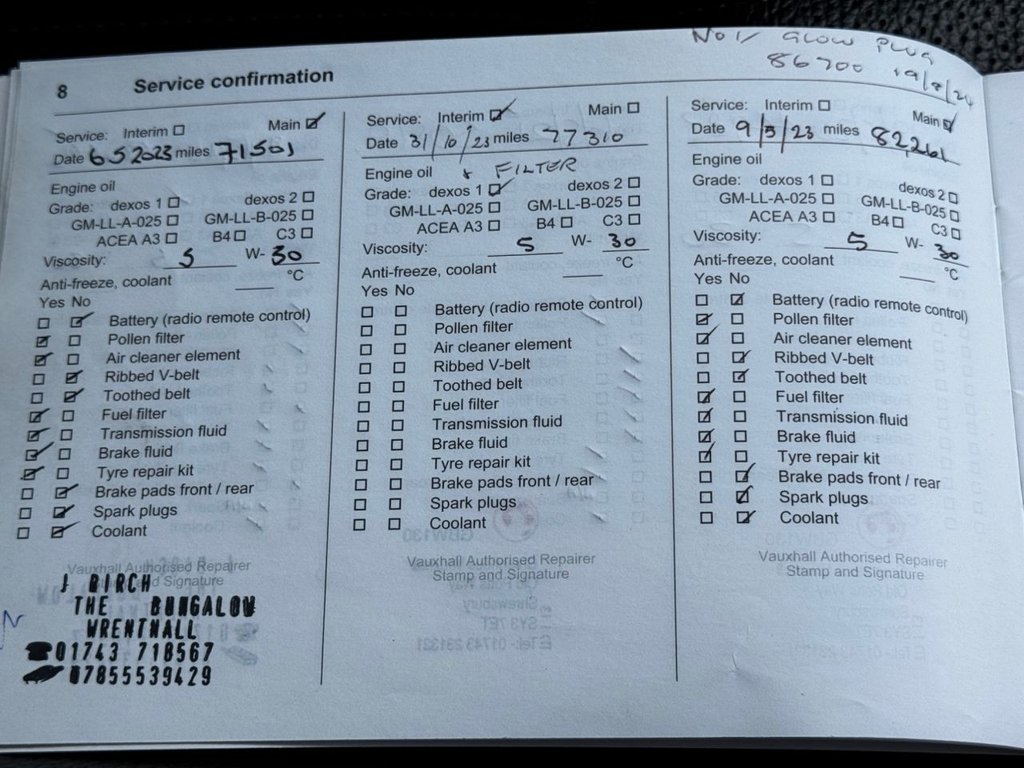 No 1 GLOW PLUG
86700 19/8/24
8 Service confirmation
Service: Interim ☐ Main ☑
Date 6 5 2023 miles 71501
Engine oil
Grade: dexos 1 ☐ dexos 2 ☐
GM-LL-A-025 ☐ GM-LL-B-025 ☐
ACEA A3 ☐ B4 ☐ C3 ☐
Viscosity: 5 W- 30
Anti-freeze, coolant ___ °C
Yes No
☐ ☑ Battery (radio remote control)
☑ ☐ Pollen filter
☑ ☐ Air cleaner element
☐ ☑ Ribbed V-belt
☐ ☑ Toothed belt
☑ ☐ Fuel filter
☑ ☐ Transmission fluid
☑ ☐ Brake fluid
☑ ☐ Tyre repair kit
☐ ☑ Brake pads front / rear
☐ ☑ Spark plugs
☐ ☑ Coolant
Vauxhall Authorised Repairer
Stamp and Signature
J BIRCH
THE BUNGALOW
WRENTNALL
01743 718567
07855539429
Service: Interim ☑ Main ☐
Date 31/10/23 miles 77310
Engine oil + FILTER
Grade: dexos 1 ☑ dexos 2 ☐
GM-LL-A-025 ☐ GM-LL-B-025 ☐
ACEA A3 ☐ B4 ☐ C3 ☐
Viscosity: 5 W- 30
Anti-freeze, coolant ___ °C
Yes No
☐ ☐ Battery (radio remote control)
☐ ☐ Pollen filter
☐ ☐ Air cleaner element
☐ ☐ Ribbed V-belt
☐ ☐ Toothed belt
☐ ☐ Fuel filter
☐ ☐ Transmission fluid
☐ ☐ Brake fluid
☐ ☐ Tyre repair kit
☐ ☐ Brake pads front / rear
☐ ☐ Spark plugs
☐ ☐ Coolant
Vauxhall Authorised Repairer
Stamp and Signature
Service: Interim ☐ Main ☑
Date 9/5/23 miles 82,261
Engine oil
Grade: dexos 1 ☐ dexos 2 ☐
GM-LL-A-025 ☐ GM-LL-B-025 ☐
ACEA A3 ☐ B4 ☐ C3 ☐
Viscosity: 5 W- 30
Anti-freeze, coolant ___ °C
Yes No
☐ ☑ Battery (radio remote control)
☑ ☐ Pollen filter
☑ ☐ Air cleaner element
☐ ☑ Ribbed V-belt
☐ ☑ Toothed belt
☑ ☐ Fuel filter
☑ ☐ Transmission fluid
☑ ☐ Brake fluid
☑ ☐ Tyre repair kit
☐ ☑ Brake pads front / rear
☐ ☑ Spark plugs
☐ ☑ Coolant
Vauxhall Authorised Repairer
Stamp and Signature